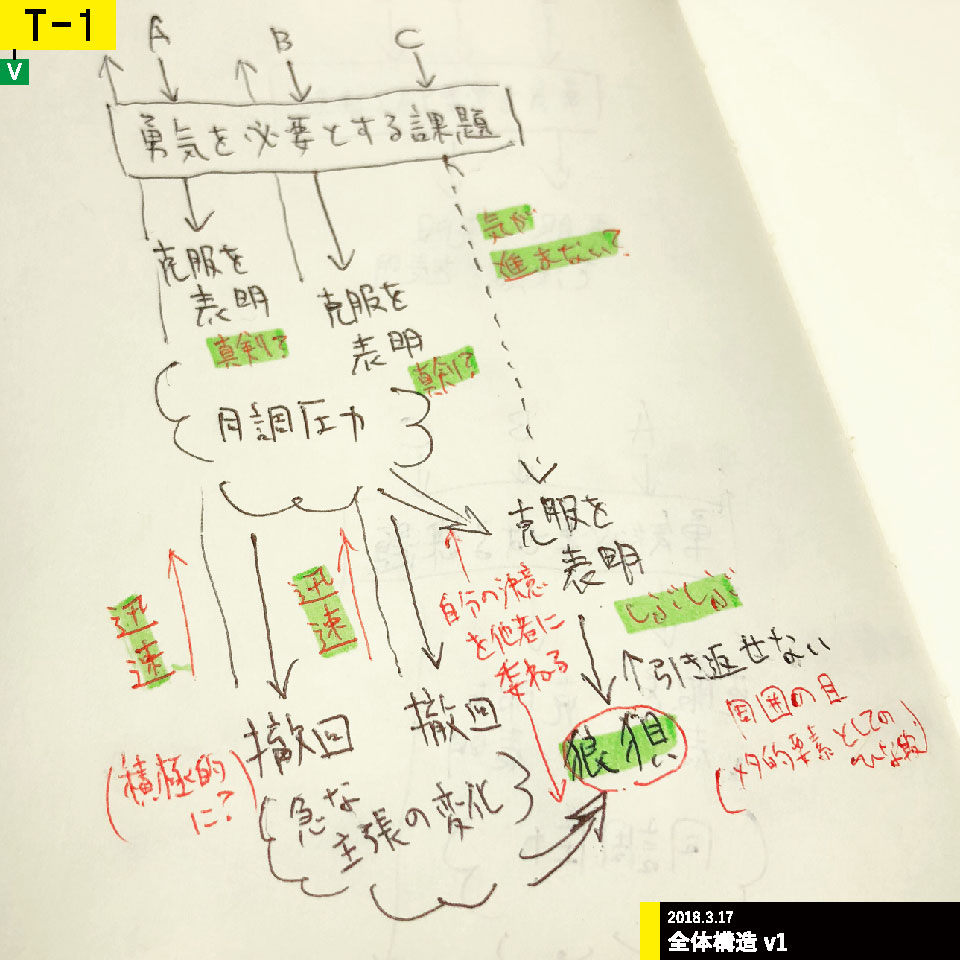 T-1
V
A
B
C
勇気を必要とする課題
気が
進まない?
克服を
表明
真剣?
克服を
表明
真剣?
同調圧力
克服を
表明
しぶしぶ
迅速
迅速
自分の決意
を他者に
委ねる
↑引き返せない
撤回
撤回
狼狽
周囲の目
(メタ的要素としての
(積極的
に?)
急な
主張の変化
2018.3.17
全体構造 v1